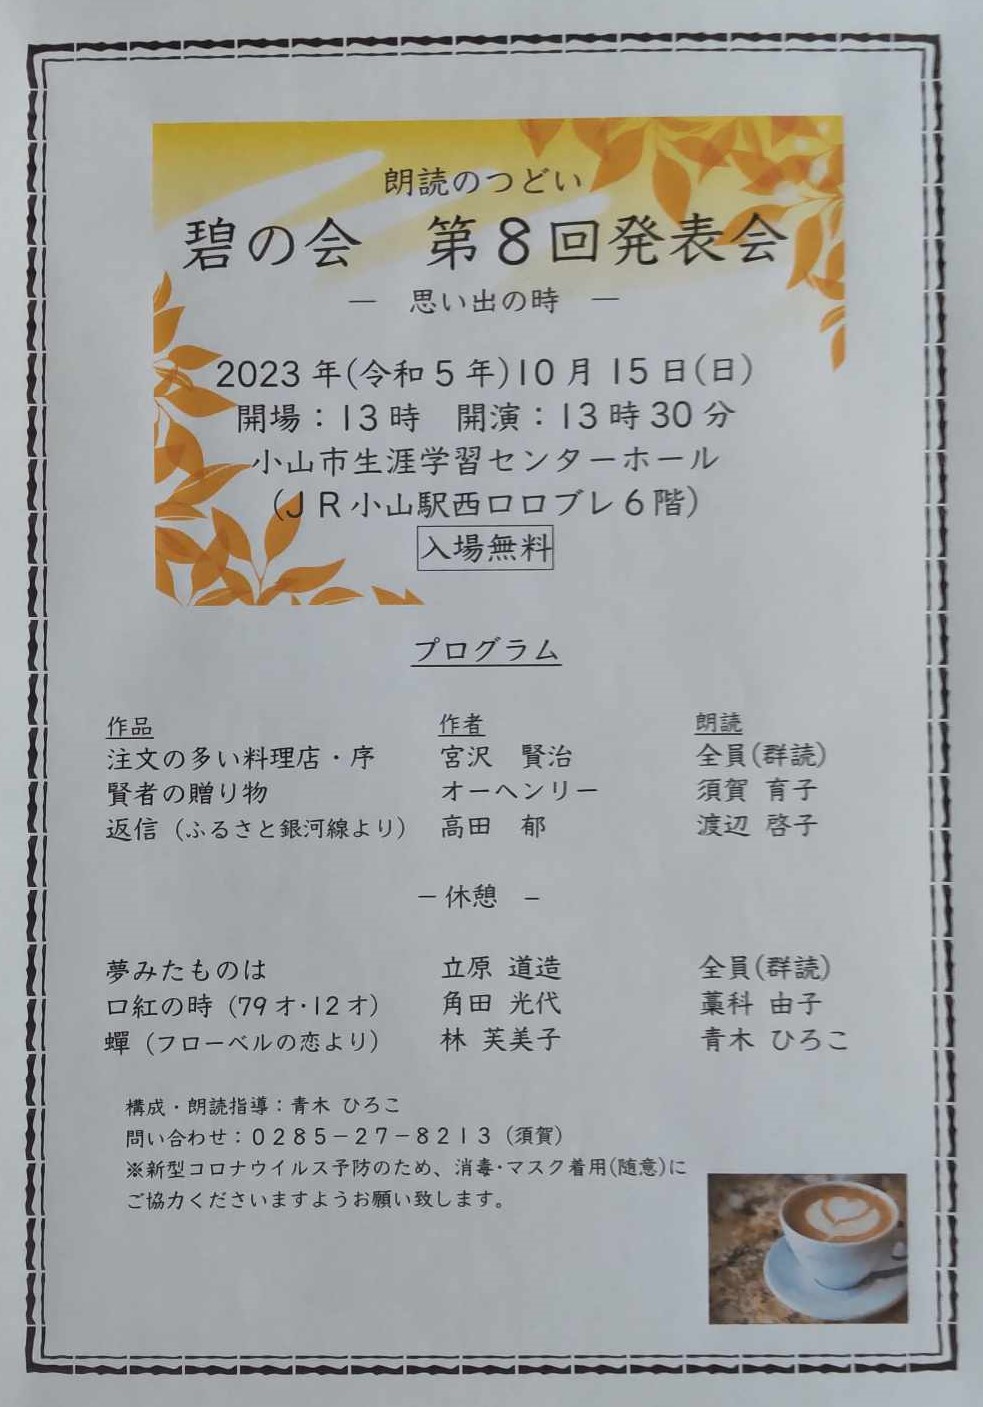 朗読のつどい
碧の会　第8回発表会
―　思い出の時　―
2023年(令和5年)10月15日(日)
開場：13時　開演：13時30分
小山市生涯学習センターホール
(JR小山駅西口ロブレ6階)
入場無料
プログラム
作品　作者　朗読
注文の多い料理店・序　宮沢　賢治　全員(群読)
賢者の贈り物　オーヘンリー　須賀 育子
返信（ふるさと銀河線より）　高田　郁　渡辺 啓子
－休憩　－
夢みたものは　立原 道造　全員(群読)
口紅の時（79才・12才）　角田 光代　藁科 由子
蟬（フローベルの恋より）　林 芙美子　青木 ひろこ
構成・朗読指導：青木 ひろこ
問い合わせ：0285－27－8213（須賀）
※新型コロナウイルス予防のため、消毒・マスク着用(随意)に
ご協力くださいますようお願い致します。